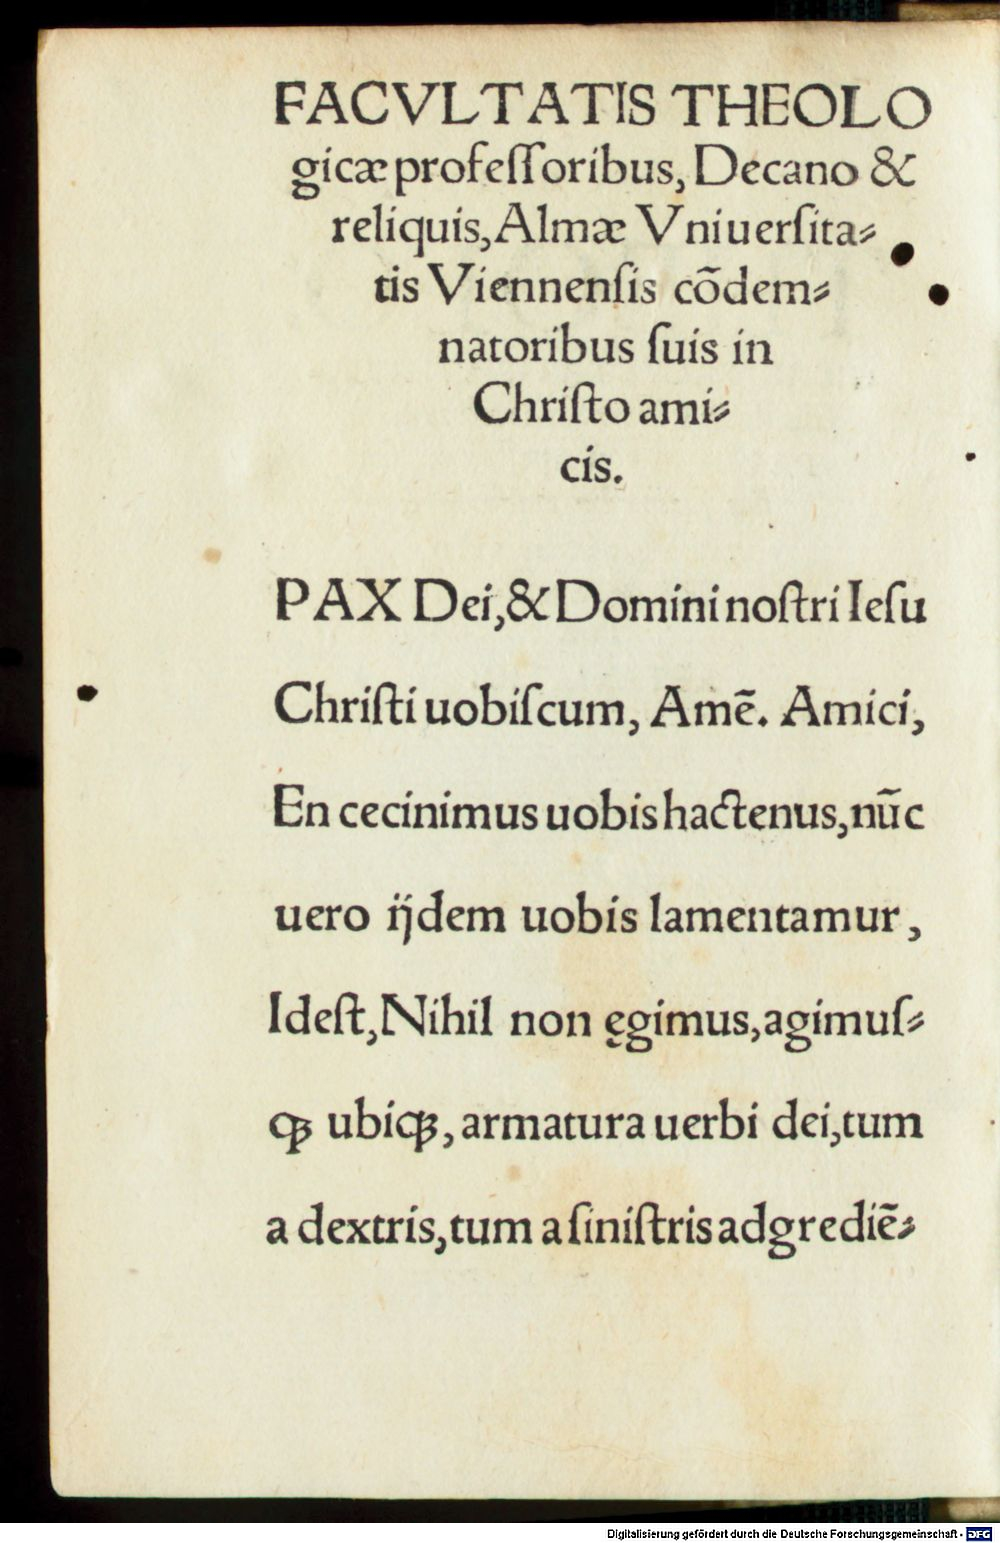 FACVLTATIS THEOLO
gicæ profeſſoribus, Decano &
reliquis, Almæ Vniuerſita⸗
tis Viennenſis cõdem⸗
natoribus ſuis in
Chriſto ami⸗
cis.
PAX Dei, & Domini noſtri Ieſu
Chriſti uobiſcum, Amẽ. Amici,
En cecinimus uobis hactenus, nũc
uero ijdem uobis lamentamur,
Ideſt, Nihil non ęgimus, agimuſ⸗
qꝫ ubiqꝫ, armatura uerbi dei, tum
a dextris, tum a ſiniſtris adgrediẽ⸗
Digitalisierung gefördert durch die Deutsche Forschungsgemeinschaft - DFG